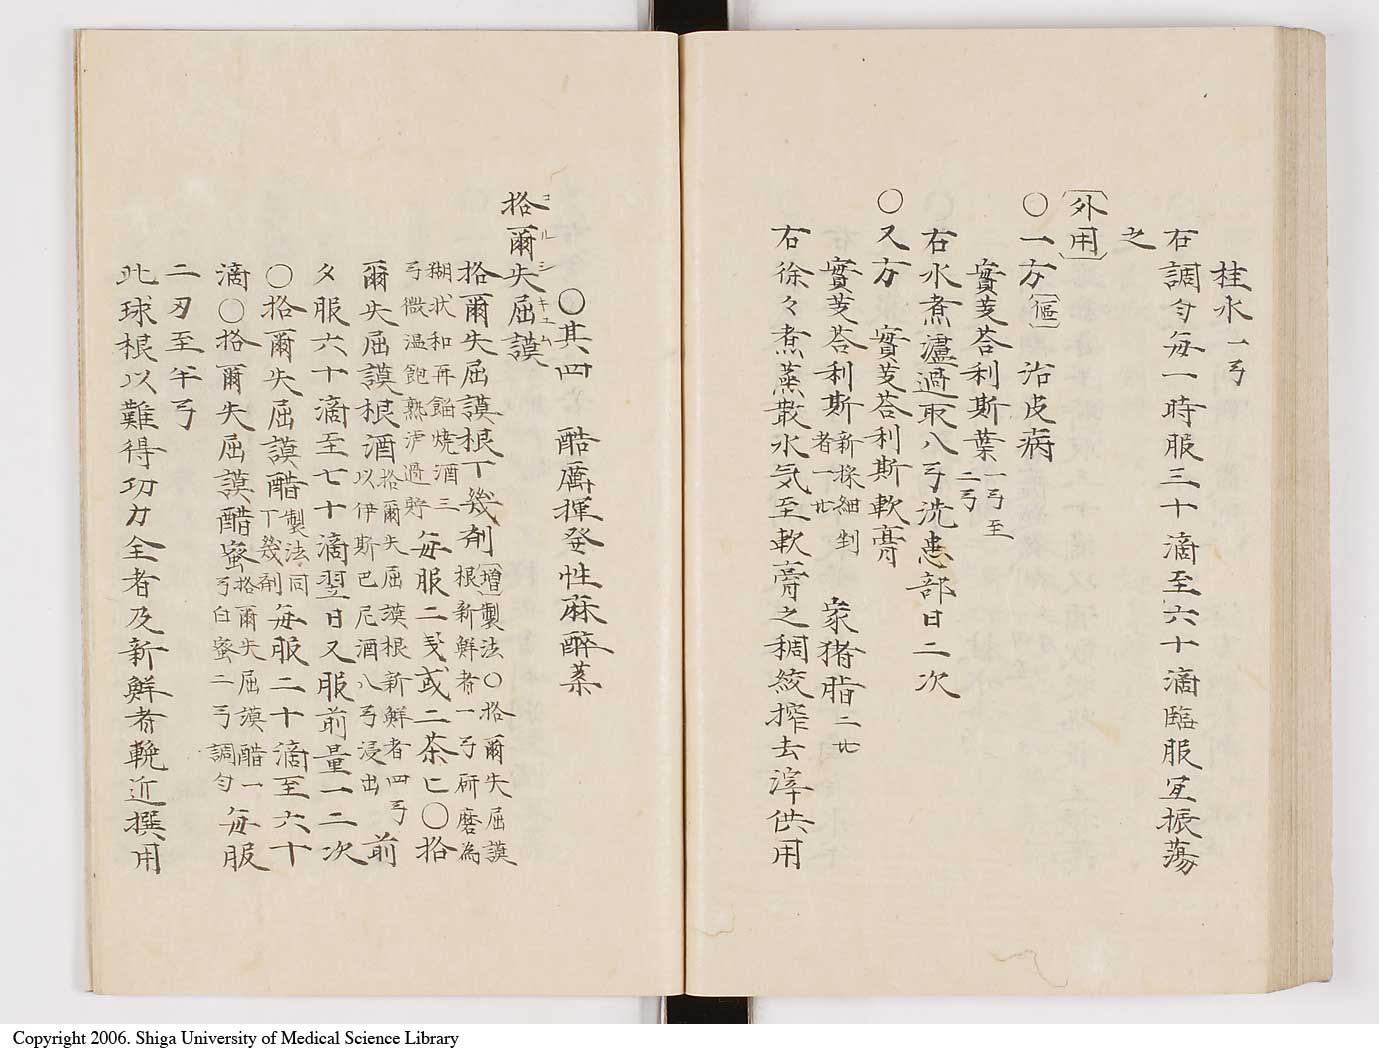 桂水一弓
右調匀毎一時服三十滴至六十滴臨服宜振蕩
之
外用
〇一方 樞 治皮病
實芰荅利斯葉一弓至二弓
右水煮瀘過取八弓洗患部日二次
〇又方 實芰荅利斯軟膏
實芰荅利斯新採細剉者一廿 豕猪脂二廿
右徐々煮蒸散水気至軟膏之稠絞搾去滓供用
〇其四 酷厲揮発性麻酔薬
挌爾失屈謨
コルシキュム
挌爾失屈謨根丁幾剤 増 製法〇挌爾失屈謨根新鮮者一弓研磨為
糊状和再餾焼酒三弓微温飽熟泸過貯 毎服二戔或二茶匕〇挌
爾失屈謨根酒 挌爾失屈謨根新鮮者四弓以伊斯巴尼酒八弓浸出 前
夕服六十滴至七十滴翌日又服前量一二次
〇挌爾失屈謨醋 製法同丁幾剤 毎服二十滴至六十
滴〇挌爾失屈謨醋蜜 挌爾失屈謨醋一弓白蜜二弓調匀 毎服
二刄至半弓
此球根以難得功力全者及新鮮者輓近撰用
Copyright 2006. Shiga University of Medical Science Library